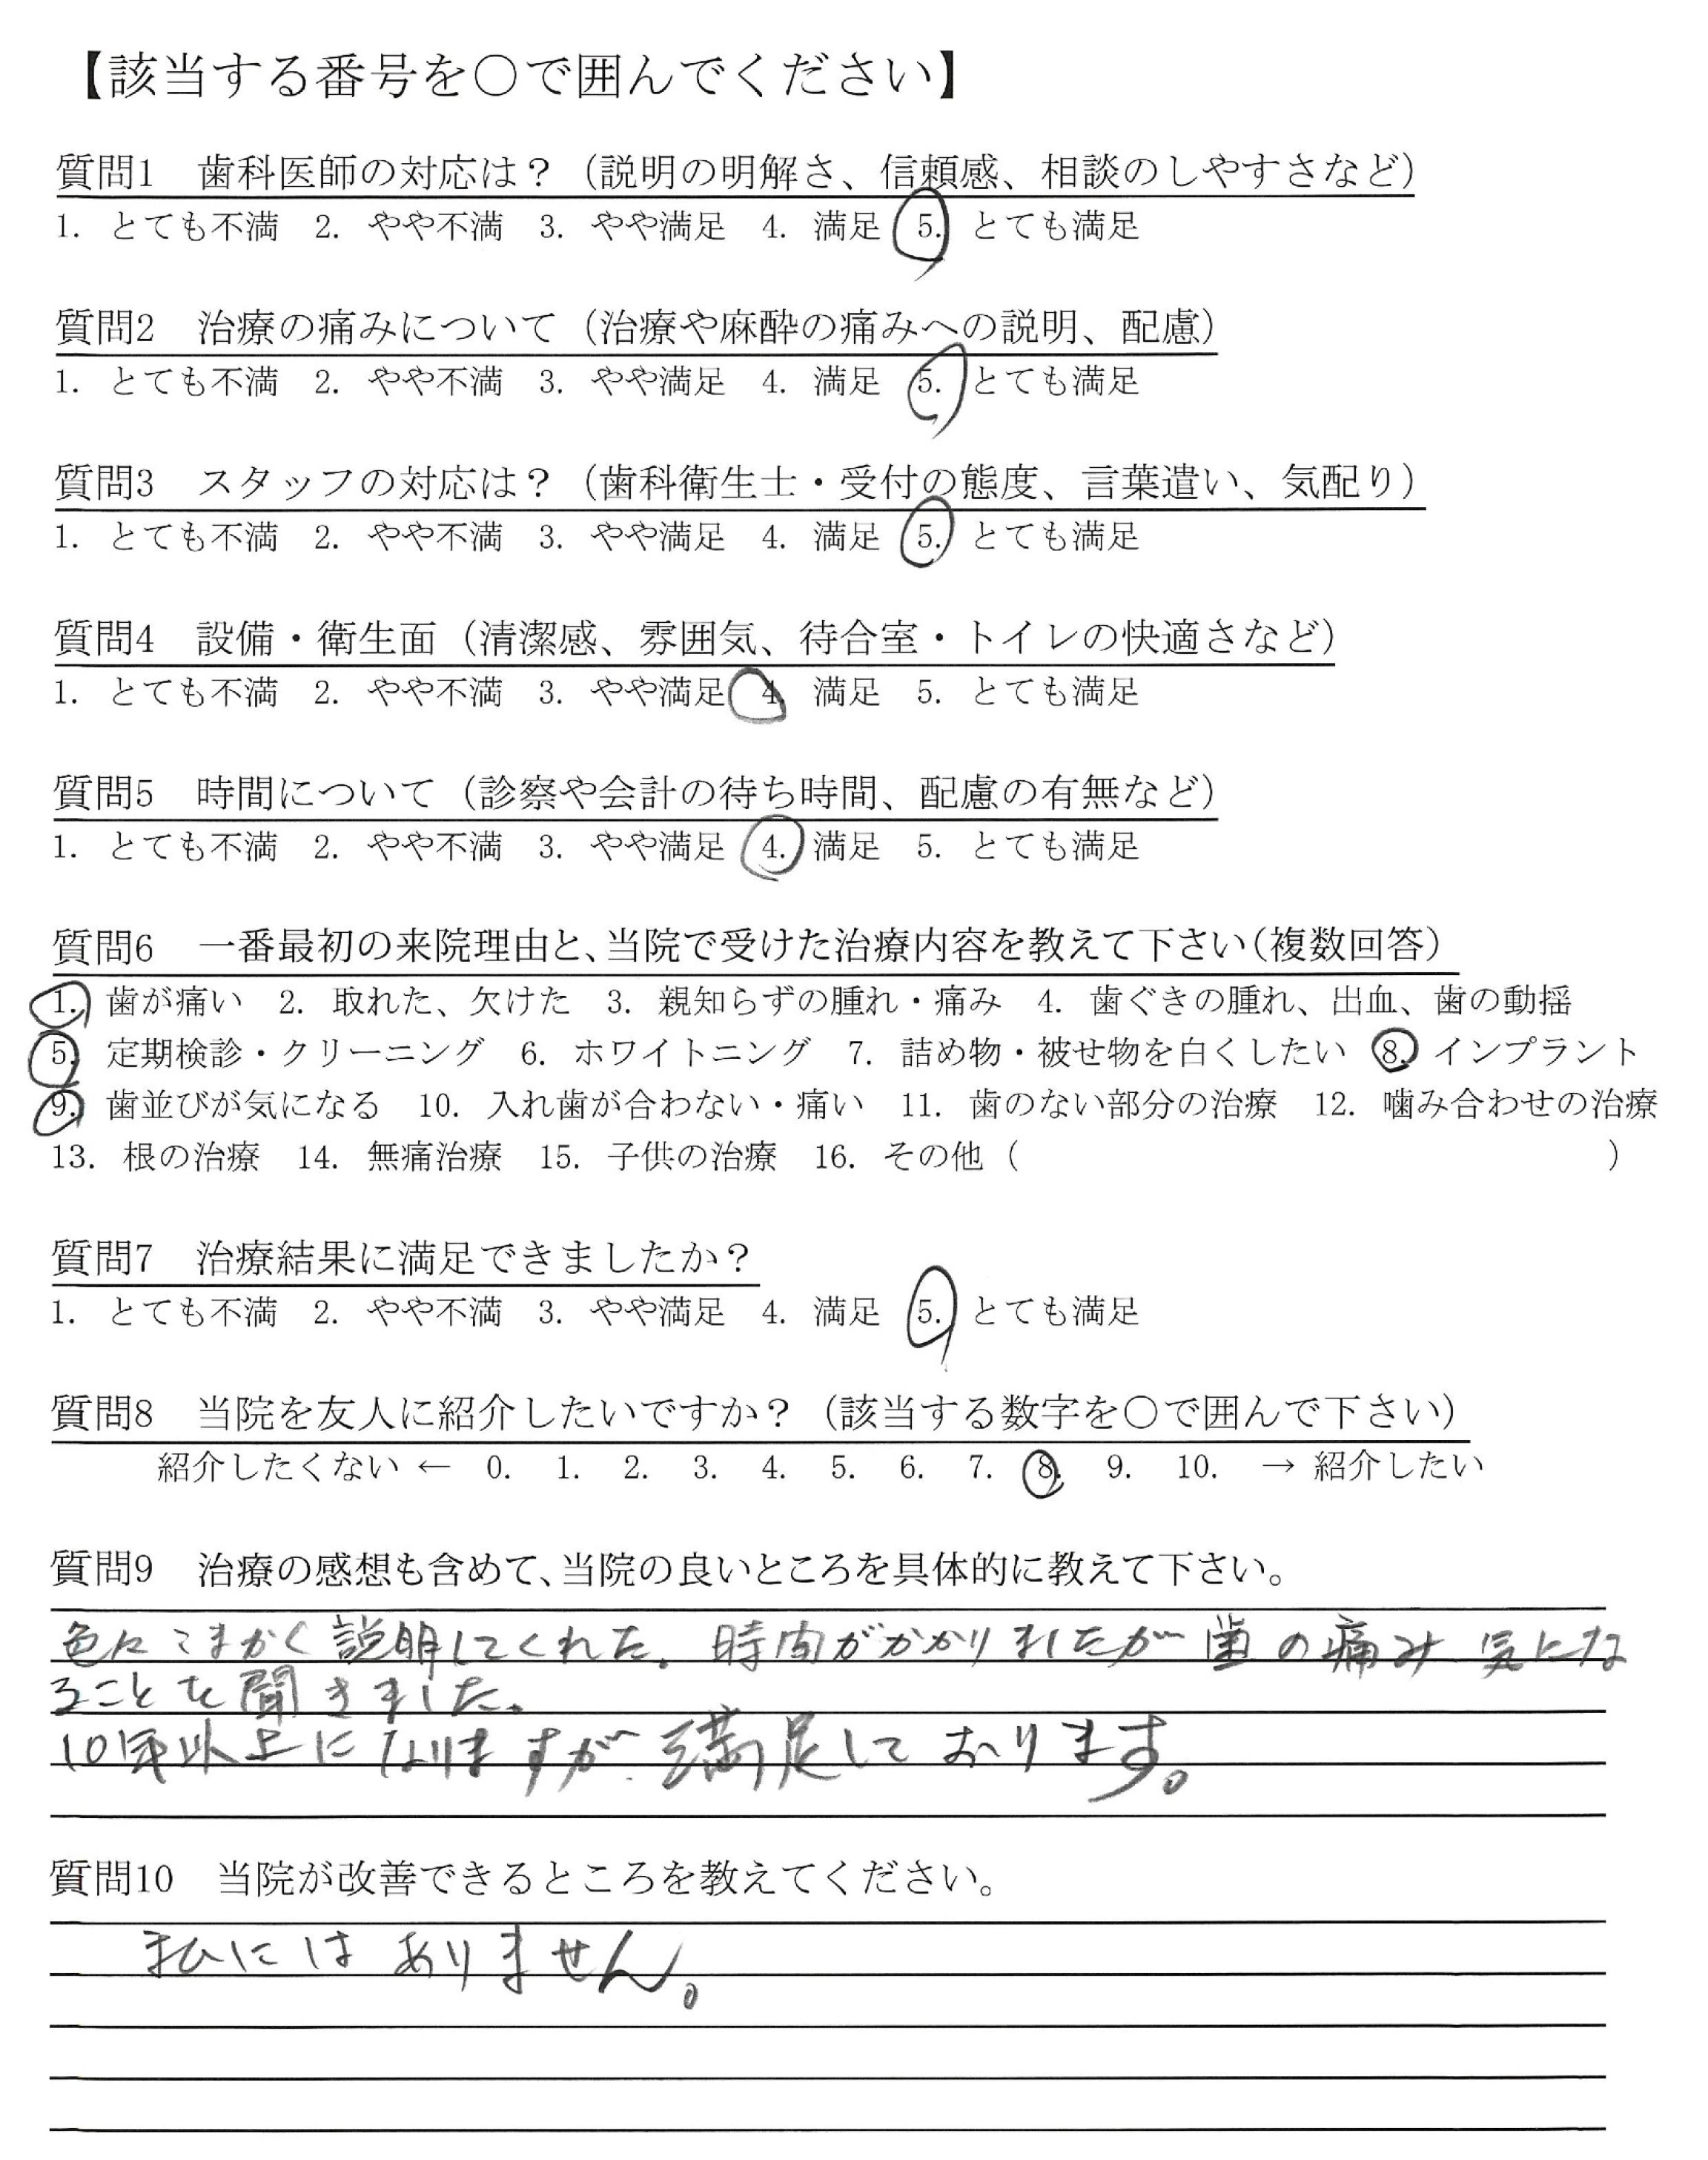 【該当する番号を〇で囲んでください】
質問1　歯科医師の対応は？（説明の明解さ、信頼感、相談のしやすさなど）
1. とても不満　2. やや不満　3. やや満足　4. 満足　5. とても満足
質問2　治療の痛みについて（治療や麻酔の痛みへの説明、配慮）
1. とても不満　2. やや不満　3. やや満足　4. 満足　5. とても満足
質問3　スタッフの対応は？（歯科衛生士・受付の態度、言葉遣い、気配り）
1. とても不満　2. やや不満　3. やや満足　4. 満足　5. とても満足
質問4　設備・衛生面（清潔感、雰囲気、待合室・トイレの快適さなど）
1. とても不満　2. やや不満　3. やや満足　4. 満足　5. とても満足
質問5　時間について（診察や会計の待ち時間、配慮の有無など）
1. とても不満　2. やや不満　3. やや満足　4. 満足　5. とても満足
質問6　一番最初の来院理由と、当院で受けた治療内容を教えて下さい（複数回答）
1. 歯が痛い　2. 取れた、欠けた　3. 親知らずの腫れ・痛み　4. 歯ぐきの腫れ、出血、歯の動揺
5. 定期検診・クリーニング　6. ホワイトニング　7. 詰め物・被せ物を白くしたい　8. インプラント
9. 歯並びが気になる　10. 入れ歯が合わない・痛い　11. 歯のない部分の治療　12. 噛み合わせの治療
13. 根の治療　14. 無痛治療　15. 子供の治療　16. その他（　　　　　　　　）
質問7　治療結果に満足できましたか？
1. とても不満　2. やや不満　3. やや満足　4. 満足　5. とても満足
質問8　当院を友人に紹介したいですか？（該当する数字を〇で囲んで下さい）
紹介したくない ← 0. 1. 2. 3. 4. 5. 6. 7. 8. 9. 10. → 紹介したい
質問9　治療の感想も含めて、当院の良いところを具体的に教えて下さい。
色々こまかく説明してくれた。時間がかかりましたが歯の痛み 気にな
ることを聞きました。
10年以上になりますが満足しております。
質問10　当院が改善できるところを教えてください。
私にはありません。